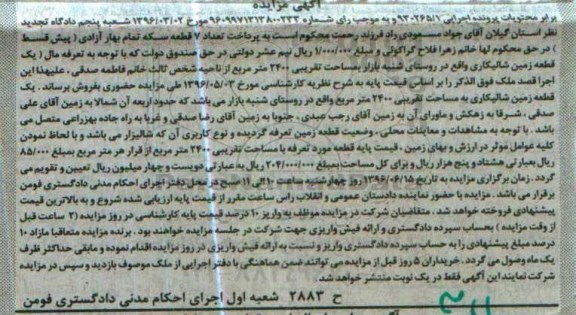 آگهی مزایده
برابر محتویات پرونده اجرایی ۹۳۰۲۶۵/۱ و به موجب رای شماره ۹۶۰۹۹۷۱۳۱۳۸۰۰۲۳۳ مورخ ۱۳۹۶/۰۳/۰۲ شعبه پنجم دادگاه تجدید
نظر استان گیلان آقای جواد مسعودی راد فرزند رحمت محکوم است به پرداخت تعداد ۷ قطعه سکه تمام بهار آزادی ( پیش قسط
) در حق محکوم لها خانم زهرا فلاح گراکوئی و مبلغ ۱/۰۰۰/۰۰۰ ریال نیم عشر دولتی در حق صندوق دولت که با توجه به تعرفه مال ( یک
قطعه زمین شالیکاری واقع در روستای شنبه بازار بمساحت تقریبی ۲۴۰۰ متر مربع از ناحیه شخص ثالث خانم فاطمه صدقی ، علیهذا این
اجرا قصد ملک فوق الذکر را بر اساس قیمت پایه به شرح نظریه کارشناسی مورخ ۱۳۹۶/۰۵/۰۳ طی مزایده حضوری بفروش برساند . یک
قطعه زمین شالیکاری به مساحت تقریبی ۲۴۰۰ متر مربع واقع در روستای شنبه بازار می باشد که حدود اربعه آن شمالا به زمین آقای علی
صدقی ، شرقا به زهکش و ماورای آن به زمین آقای رجب عبدی ، جنوبا به زمین آقای رضا صدقی و غربا به راه جاده بهزراعی متصل می
باشد . با توجه به مشاهدات و معاینات محلی ، وضعیت قطعه زمین تعرفه گردیده و نوع کاربری آن که شالیزار می باشد و با لحاظ نمودن
کلیه عوامل موثر در ارزش و بهای زمین ، قیمت پایه قطعه مورد تعرفه با مساحت تقریبی ۲۴۰۰ متر مربع از قرار هر متر مربع بمبلغ ۸۵/۰۰۰
ریال بعبارتی هشتاد و پنج هزار ریال و برای کل مساحت بمبلغ ۲۰۴/۰۰۰/۰۰۰ ریال به عبارتی دویست و چهار میلیون ریال تعیین و تقویم می
گردد. زمان برگزاری مزایده به تاریخ ۱۳۹۶/۰۶/۱۵ روز چهارشنبه ساعت ۱۰ الی ۱۱ صبح در محل دفتر اجرای احکام مدنی دادگستری فومن
برقرار می باشد. مزایده با حضور نماینده دادستان عمومی و انقلاب راس ساعت مقرر از قیمت پایه ارزیابی شده شروع و به بالاترین قیمت
پیشنهادی فروخته خواهد شد . متقاضیان شرکت در مزایده موظف به واریز ۱۰ درصد قیمت پایه کارشناسی در روز مزایده ( ۲ ساعت قبل
از وقت مزایده ) بحساب سپرده دادگستری و ارائه فیش واریزی جهت شرکت در جلسه مزایده خواهند بود . برنده مزایده متعاقبا مازاد ۱۰
درصد مبلغ پیشنهادی را به حساب سپرده دادگستری واریز و نسبت به ارائه فیش واریزی در روز مزایده اقدام نموده و مابقی حداکثر ظرف
یک ماه وصول می گردد . خریداران ۵ روز قبل از مزایده می توانند ضمن هماهنگی با دفتر اجرایی از ملک موصوف بازدید و سپس در مزایده
شرکت نمایند این آگهی فقط در یک نوبت منتشر خواهد شد .
ح ۲۸۸۳ شعبه اول اجرای احکام مدنی دادگستری فومن